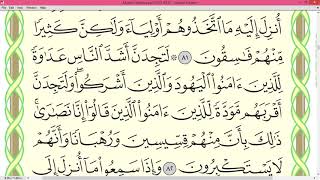 أُنزِلَ إِلَيْهِ مَا ٱتَّخَذُوهُمْ أَوْلِيَآءَ وَلَٰكِنَّ كَثِيرًا
مِّنْهُمْ فَٰسِقُونَ ٨١ ۞ لَتَجِدَنَّ أَشَدَّ ٱلنَّاسِ عَدَٰوَةً
لِّلَّذِينَ ءَامَنُوا۟ ٱلْيَهُودَ وَٱلَّذِينَ أَشْرَكُوا۟ ۖ وَلَتَجِدَنَّ
أَقْرَبَهُم مَّوَدَّةً لِّلَّذِينَ ءَامَنُوا۟ ٱلَّذِينَ قَالُوٓا۟ إِنَّا نَصَٰرَىٰ ۚ
ذَٰلِكَ بِأَنَّ مِنْهُمْ قِسِّيسِينَ وَرُهْبَانًا وَأَنَّهُمْ
لَا يَسْتَكْبِرُونَ ٨٢ وَإِذَا سَمِعُوا۟ مَآ أُنزِلَ إِلَى